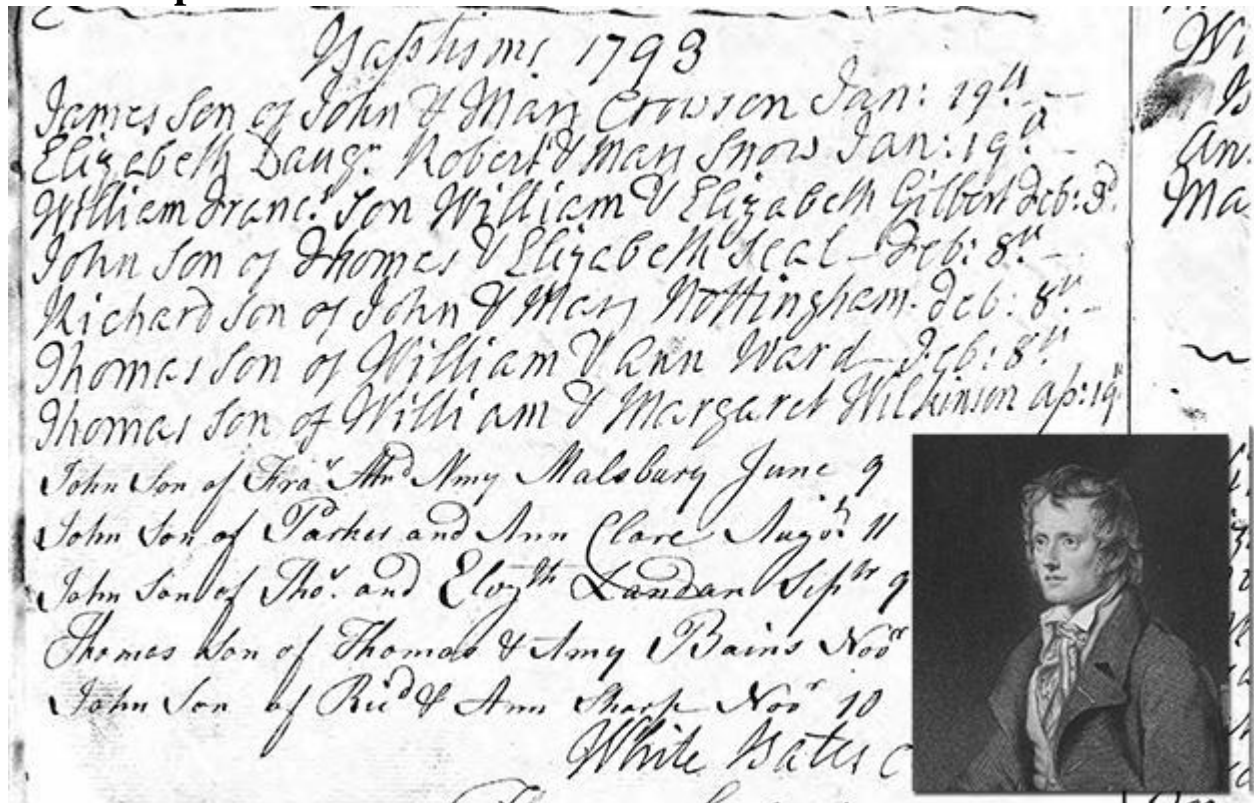 Baptisms 1793
James Son of John & Mary Crowson Jan: 19th
Elizabeth Daugr. Robert & Mary Snow Jan: 19th
William Franc.s Son William & Elizabeth Gilbert Feb: 3d.
John Son of Thomas & Elizabeth Seal Feb: 8th
Richard Son of John & Mary Nottingham Feb: 8th
Thomas Son of William & Ann Ward Feb: 8th
Thomas Son of William & Margaret Wilkinson Ap: 19th
John Son of Fra.s And Amy Malsbury June 9
John Son of Parker and Ann Clare Augst 11
John Son of Tho.s and Elizth Landan Sepr 9
Thomas Son of Thomas & Amy Bains Novr
John Son of Ricd & Ann Sharp Novr 10
White Bates C
Wi
An
Ma